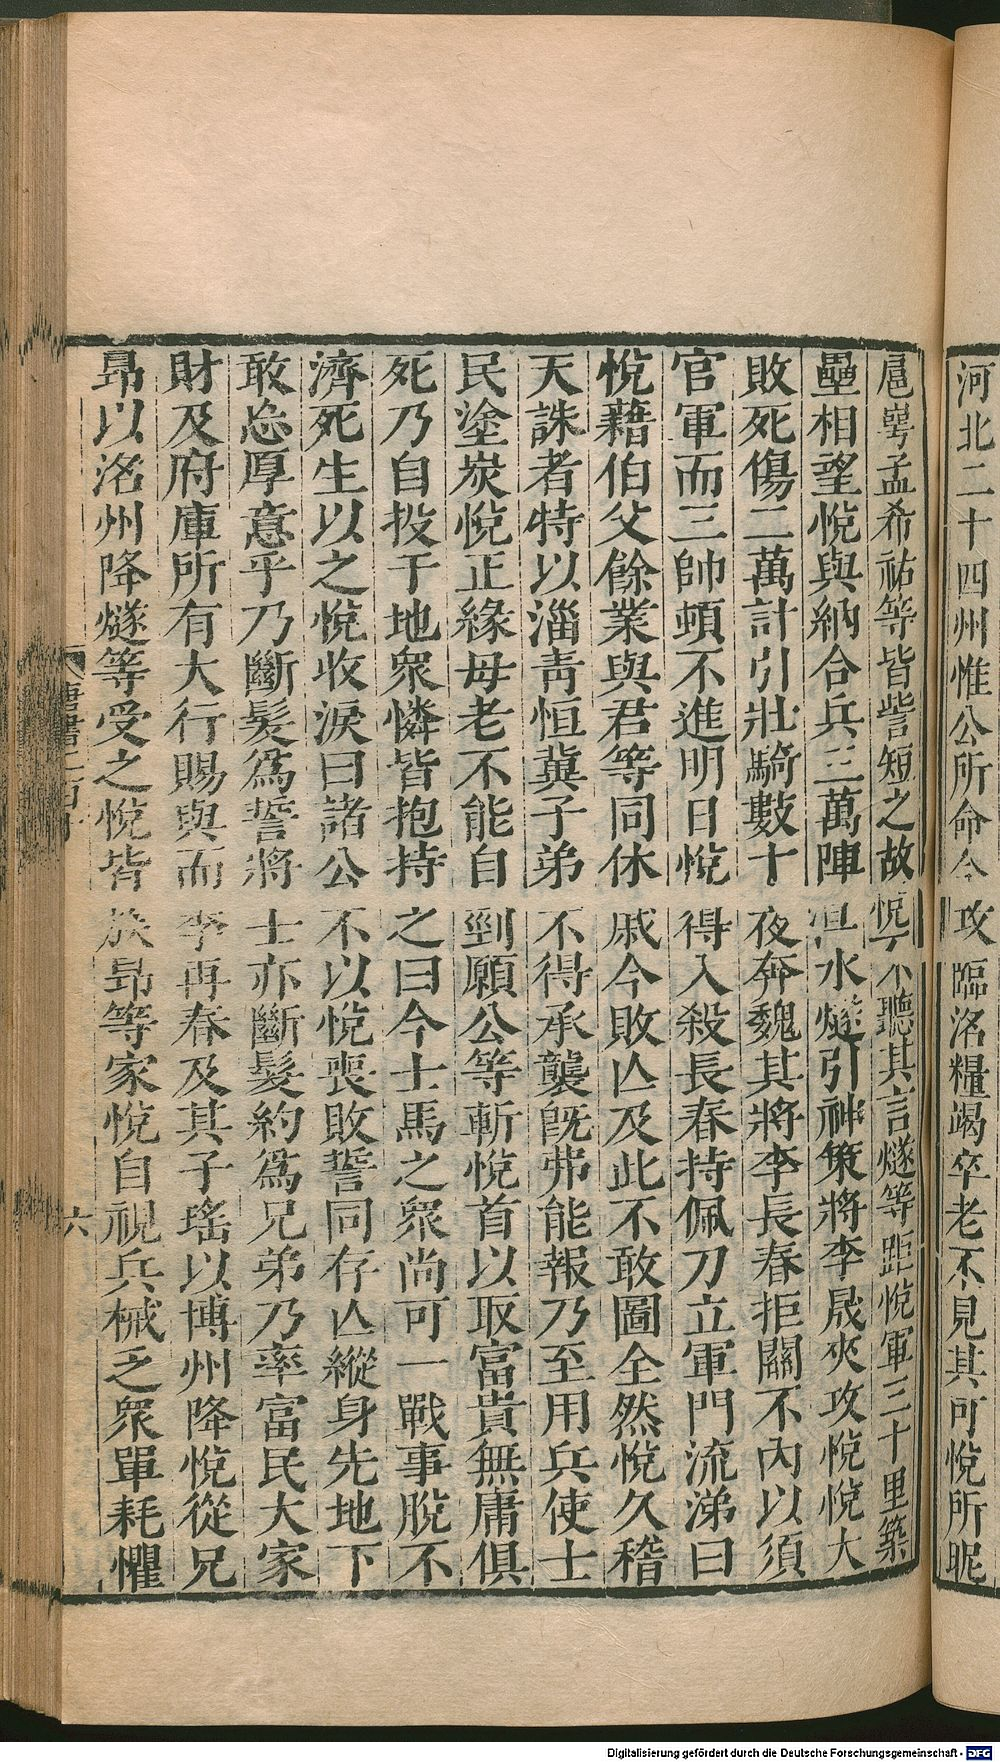 河北二十四州惟公所命今攻臨洺糧竭卒老不見其可悅所昵
扈崿孟希祐等皆訾短之故悅不聽其言燧等距悅軍三十里築
壘相望悅與納合兵三萬陣洹水燧引神策將李晟夾攻悅悅大
敗死傷二萬計引壯騎數十夜奔魏其將李長春拒關不內以須
官軍而三帥頓不進明日悅得入殺長春持佩刀立軍門流涕曰
悅藉伯父餘業與君等同休戚今敗亾及此不敢圖全然悅久稽
天誅者特以淄靑恒冀子弟不得承襲旣弗能報乃至用兵使士
民塗炭悅正緣母老不能自剄願公等斬悅首以取富貴無庸俱
死乃自投于地衆憐皆抱持之曰今士馬之衆尚可一戰事脫不
濟死生以之悅收淚曰諸公不以悅喪敗誓同存亾縱身先地下
敢忘厚意乎乃斷髮爲誓將士亦斷髮約爲兄弟乃率富民大家
財及府庫所有大行賜與而李再春及其子瑤以博州降悅從兄
昻以洺州降燧等受之悅皆族昻等家悅自視兵械乏衆單耗懼
六
Digitalisierung gefördert durch die Deutsche Forschungsgemeinschaft - DFG